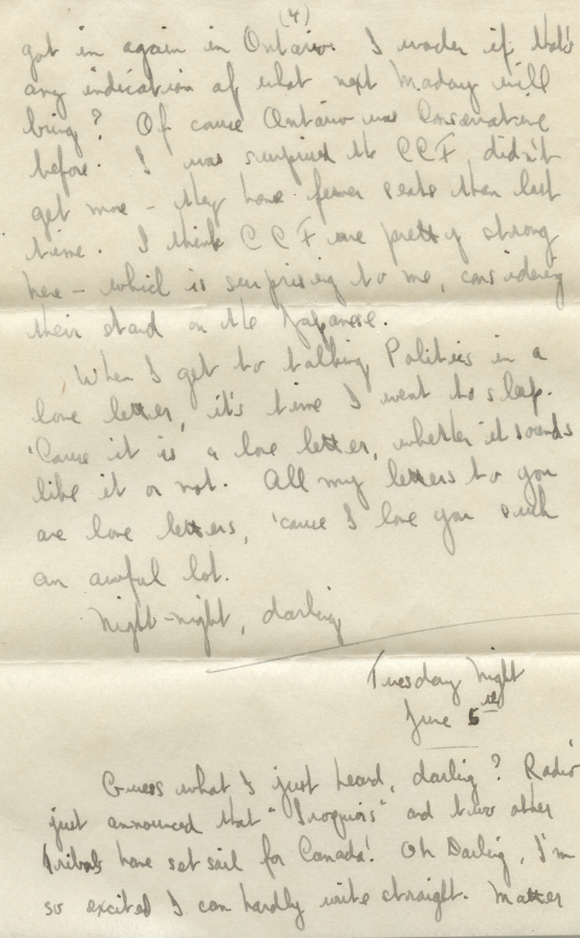 (4)
got in again in Ontario. I wonder if that's
any indication of what next Monday will
bring? Of course Ontario was Conservative
before. I was surprised the CCF didn't
get more - they have fewer seats than last
time. I think CCF are pretty strong
here - which is surprising to me, considering
their stand on the Japanese.
When I get to talking Politics in a
love letter, it's time I went to sleep.
'Cause it is a love letter, whether it sounds
like it or not. All my letters to you
are love letters, 'cause I love you such
an awful lot.
Night-night, darling
Tuesday Night
June 5th
Guess what I just heard, darling? Radio
just announced that "Iroquois" and two other
Tribals have set sail for Canada! Oh Darling, I'm
so excited I can hardly write straight. Matter